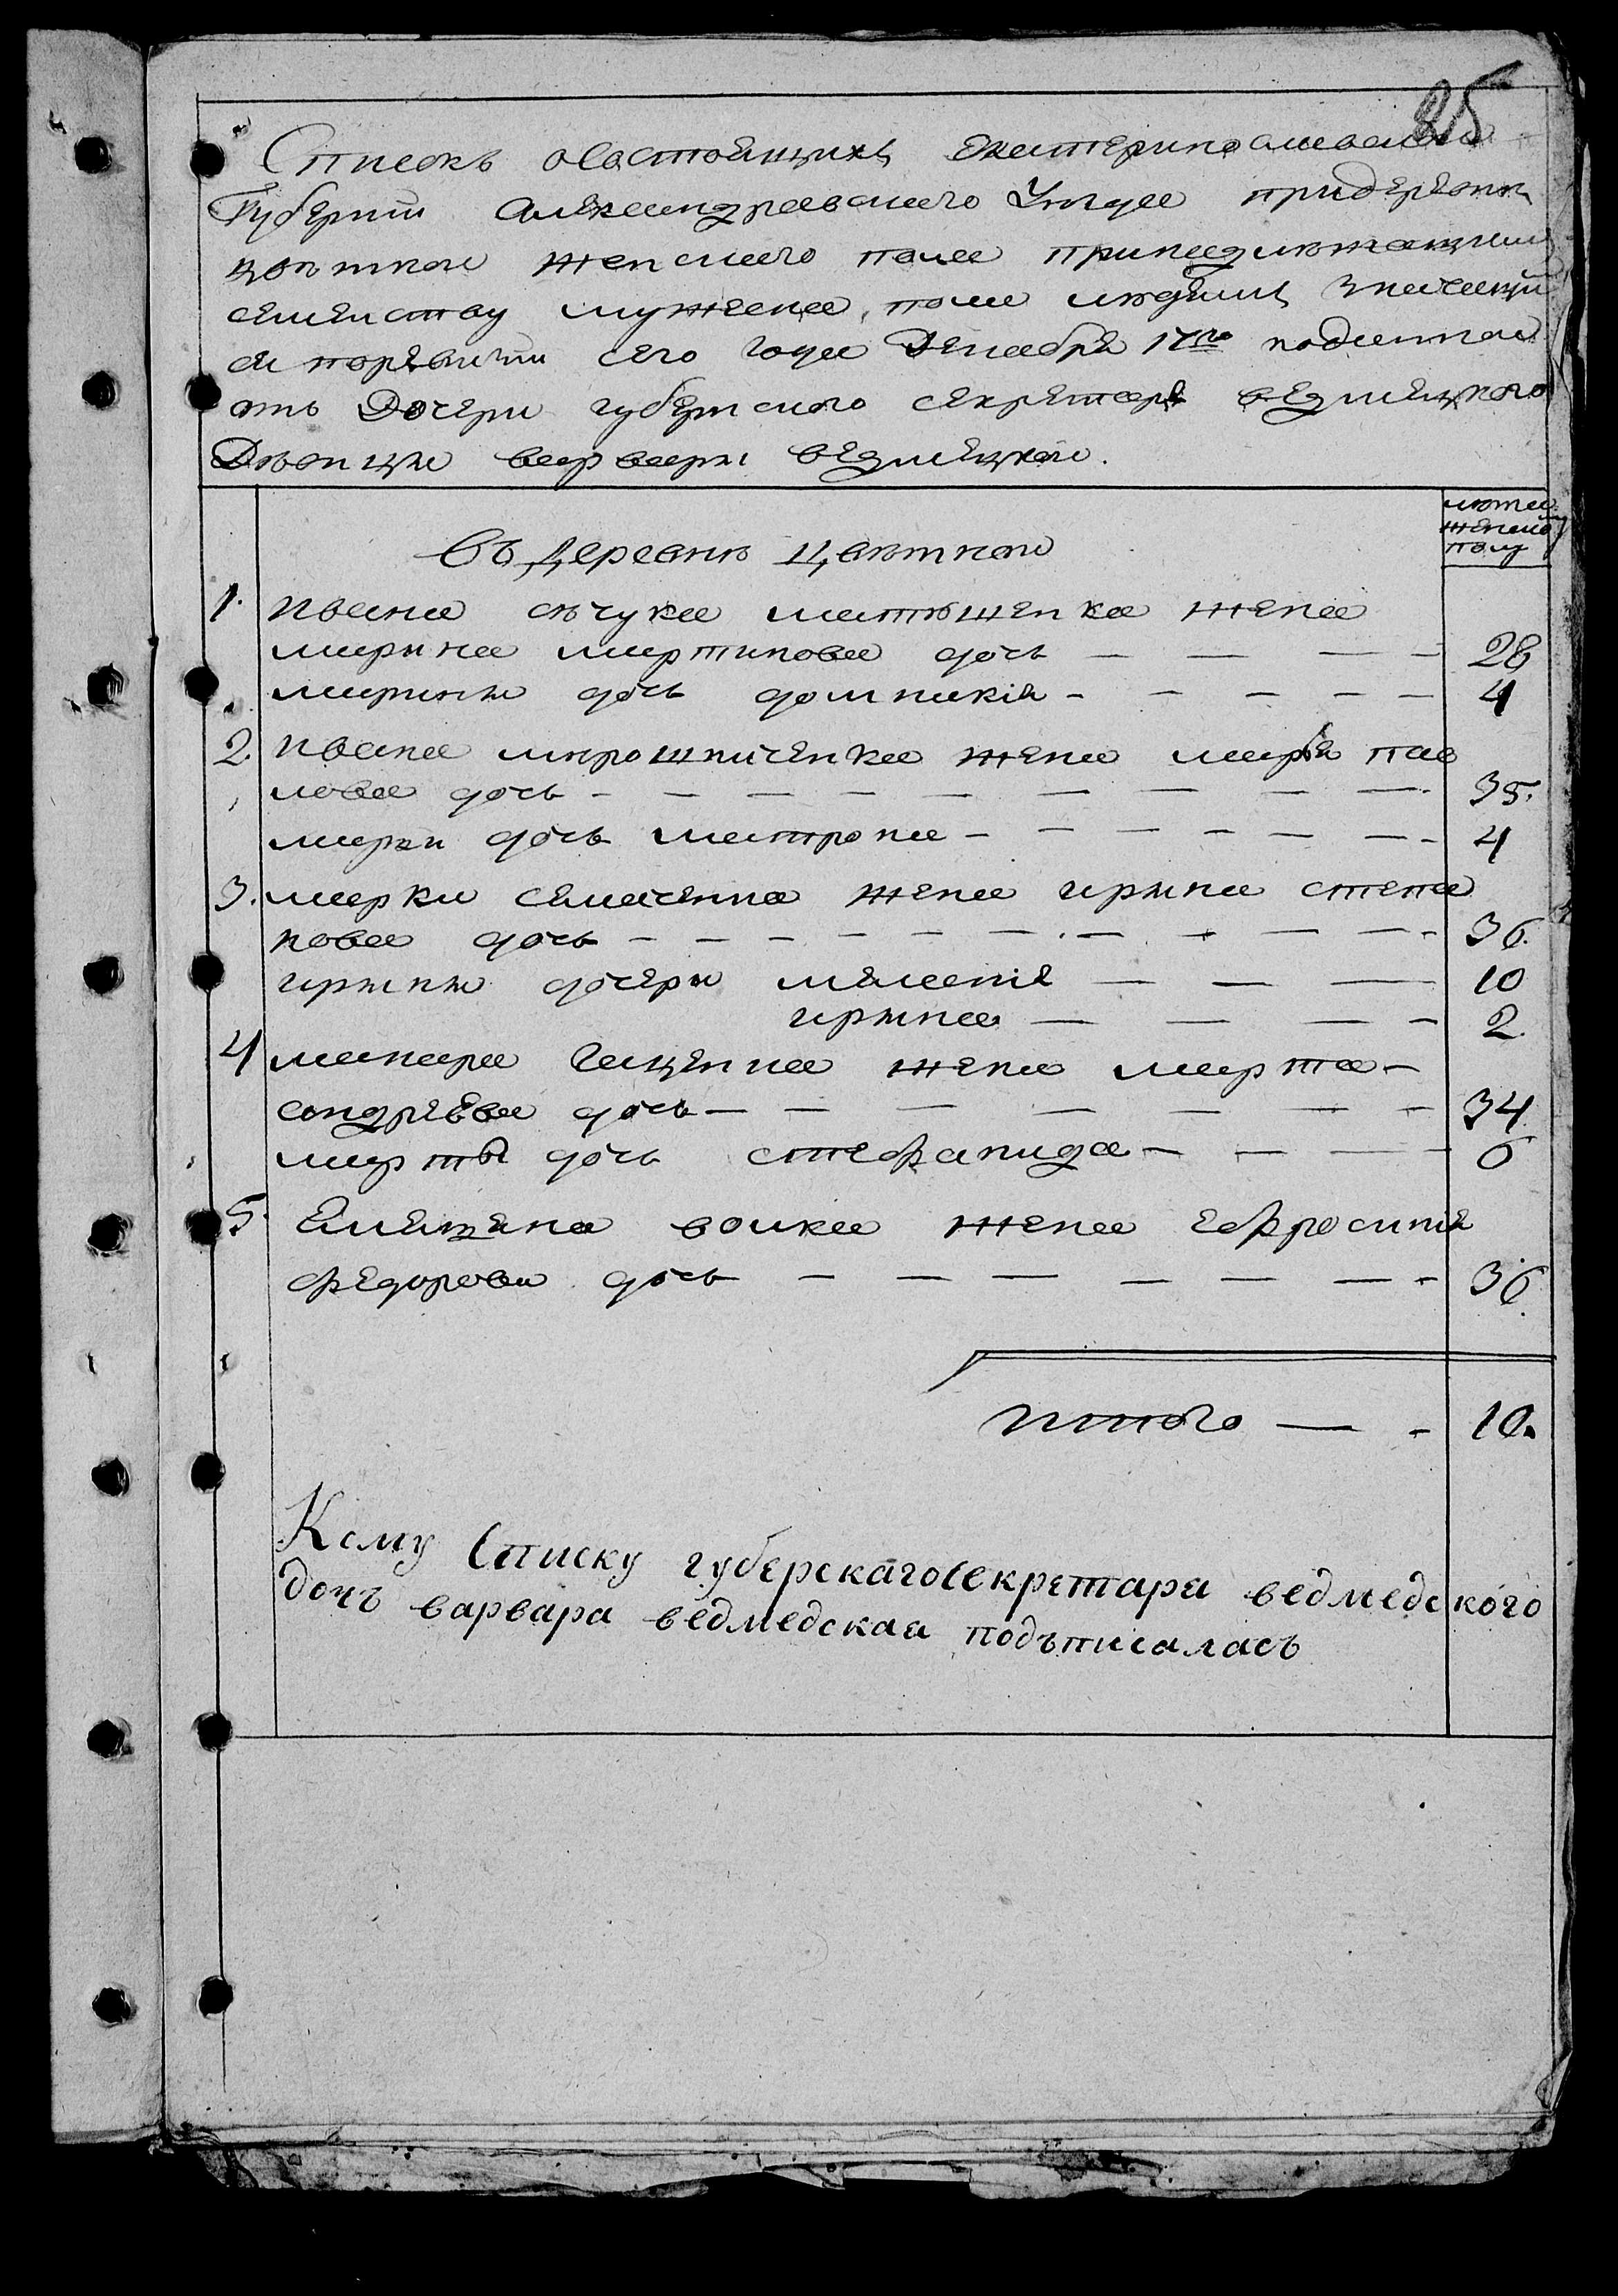 25
Списокъ о состоящихъ Екатеринославской
Губернии Александровского Уезда придеревни
цветной женского пола принадлежащим
семейству мужеска пола людямъ значащим
ся поревизии сего года Декабря 17го поданной
отъ Дочери губернского секретаря ведмецкого
Девицы варвары ведмецкой.
лета
женско
полу
Въ деревне Цветной
1. ивана жена
марина мартинова дочь — — — — 28
марины дочь домникия - - - - - 4
2. ивана мирошниченка жена мария пав
лова дочь - - - - - - - - - 35.
марии дочь матрона - - - - - - 4
3. марки семаченка жена ирина степа
нова дочь - - - - - - - - - - 36.
ирины дочери меланія — — — 10
ирина — — — — 2.
4 макара гаценка жена марта
андреева дочь — — — — — — — 34
марты дочь стефанида — — — 6
5. Емельяна волка жена ефросинія
федорова дочь — — — — — — — 36.
итого — - 10.
Ксму Списку губерскаго секретара ведмедского
дочъ варвара ведмедская подъписаласъ